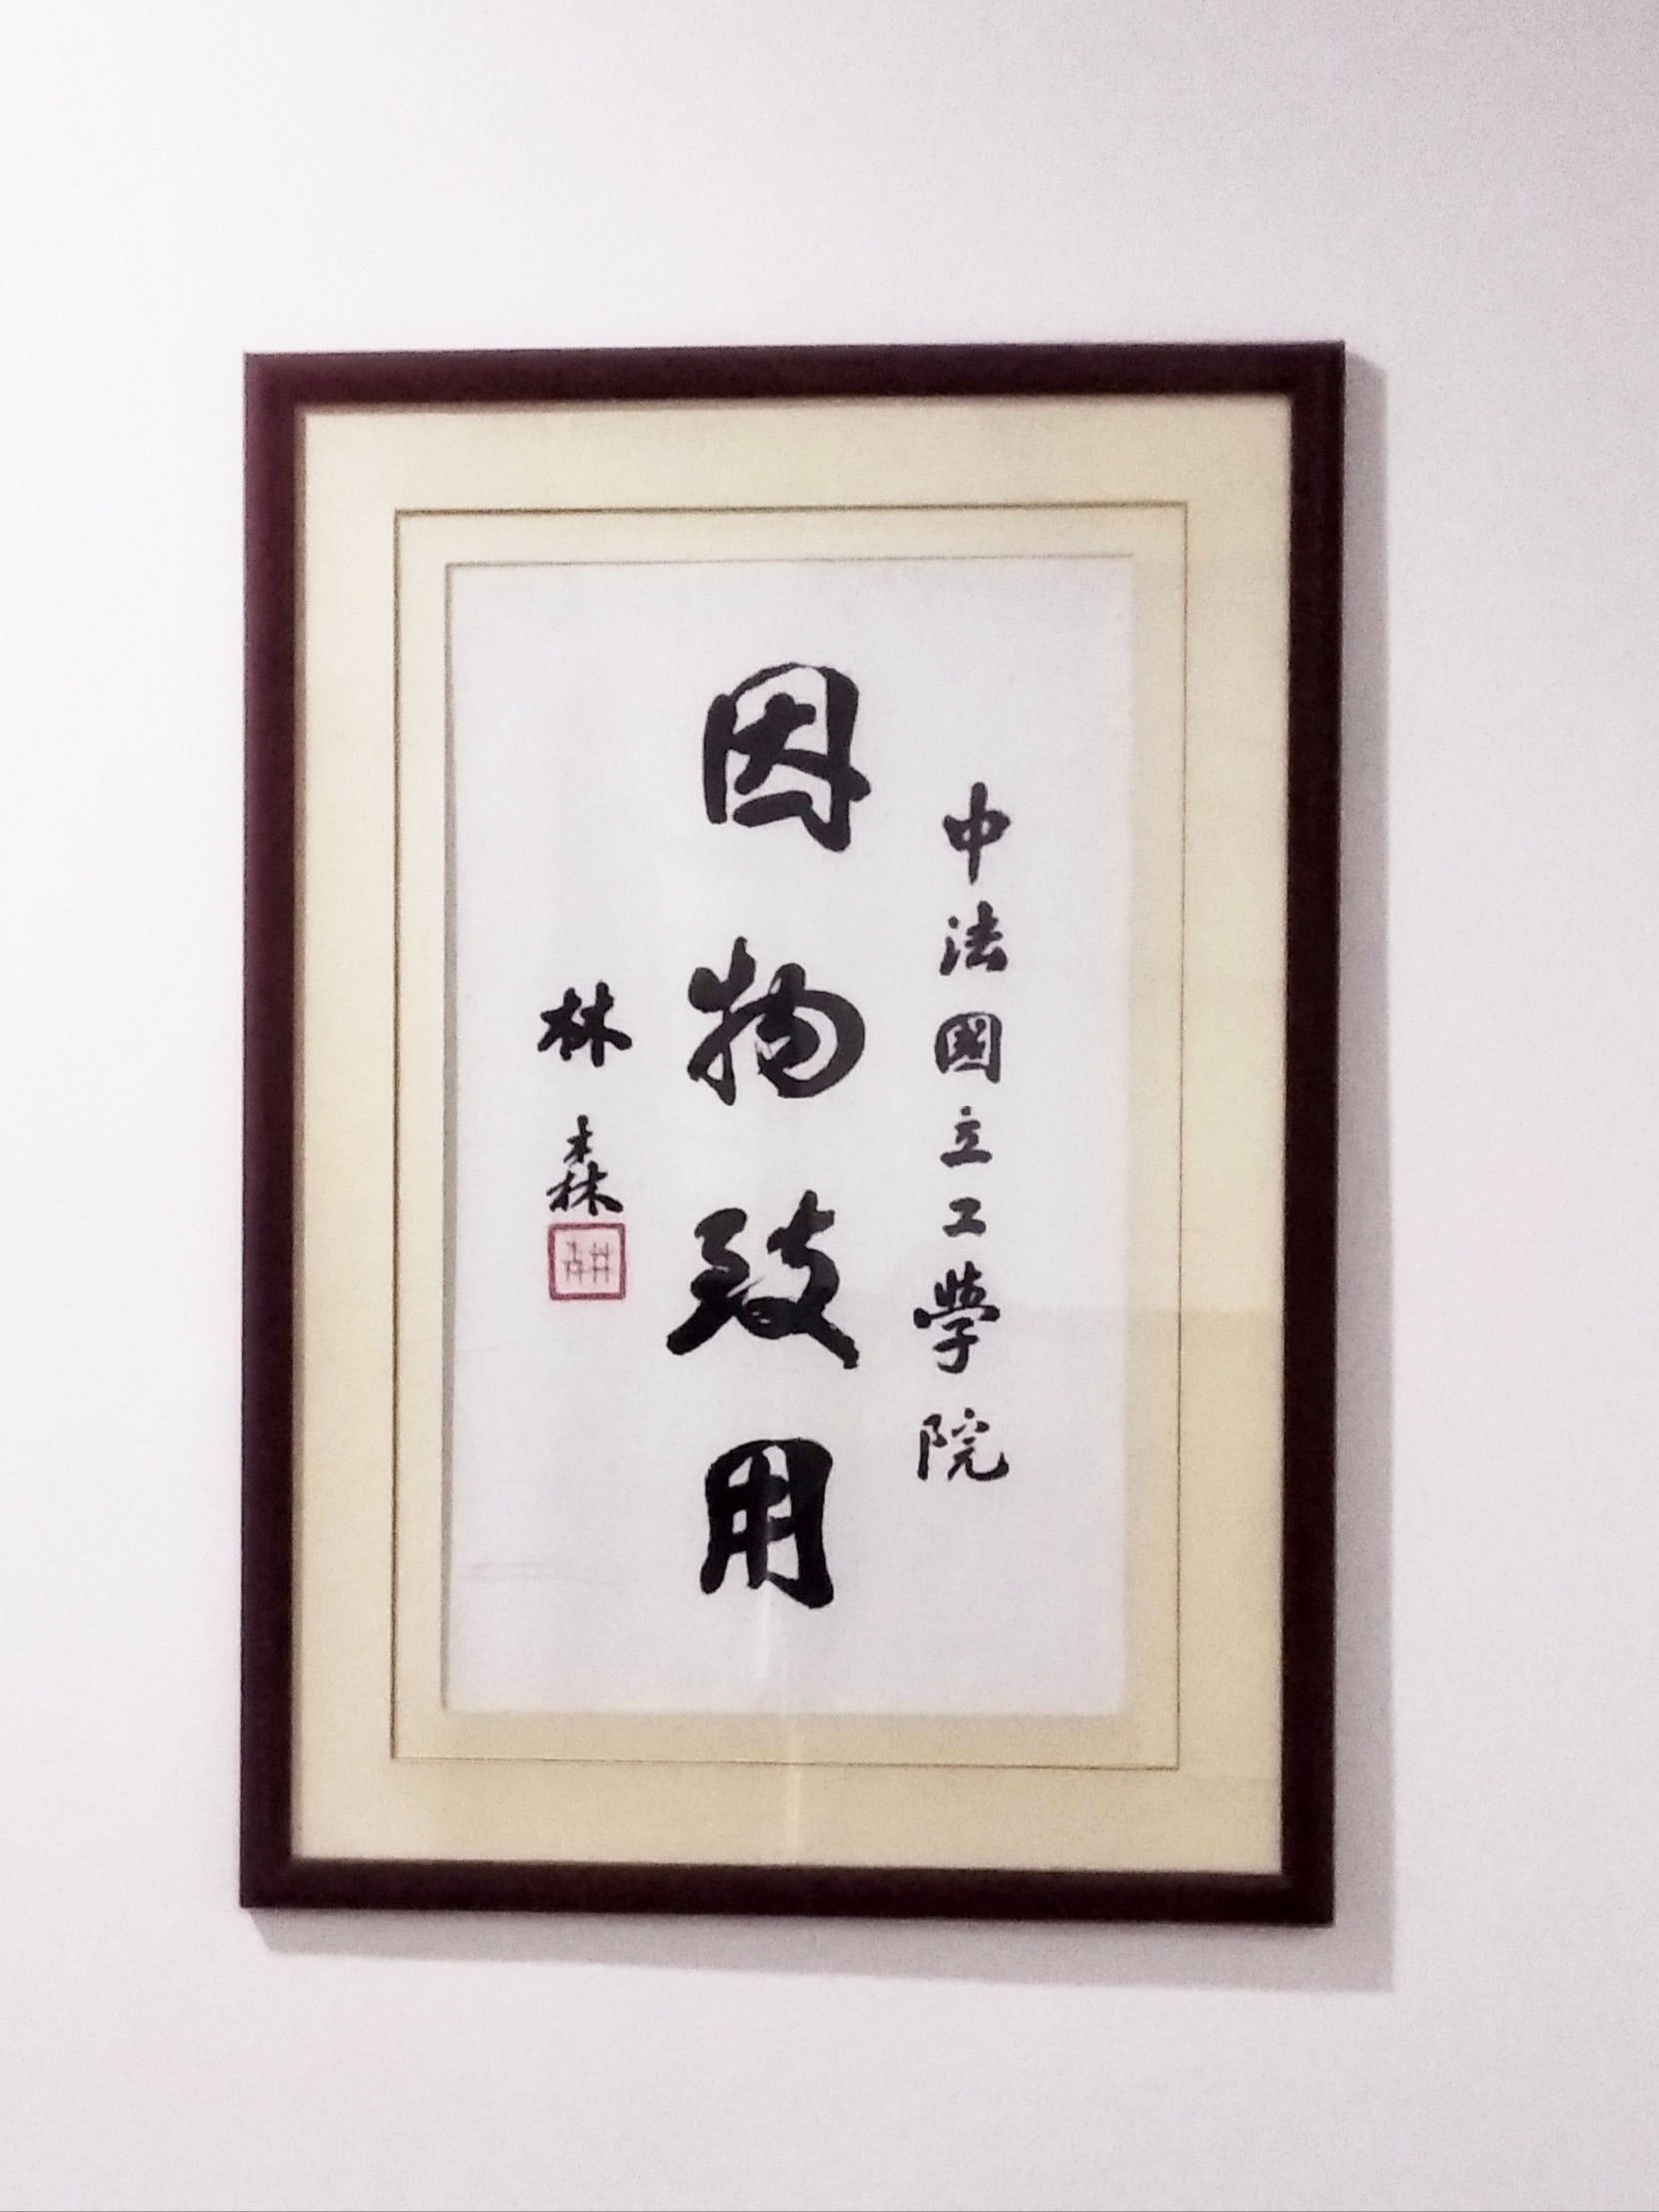 中法國立工學院
因物致用
林森